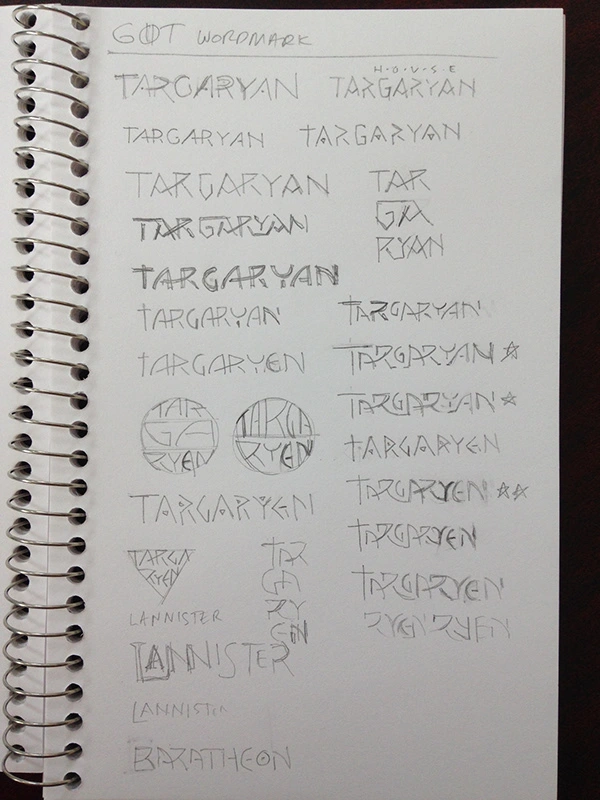 GOT WORDMARK
TARGARYAN
H·O·U·S·E
TARGARYAN
TARGARYAN
TARGARYAN
TARGARYAN
TAR
GA
RYAN
TARGARYAN
TARGARYAN
TARGARYAN
TARGARYAN
TARGARYEN
TARGARYAN
TAR
GA
RYEN
TARGA
RYEN
TARGARYAN
TARGARYEN
TARGARYEN
TARGARYEN
TARGARYEN
TARGA
RYEN
TAR
GA
RY
EN
TARGARYEN
LANNISTER
RYEN RYEN
LANNISTER
LANNISTER
BARATHEON